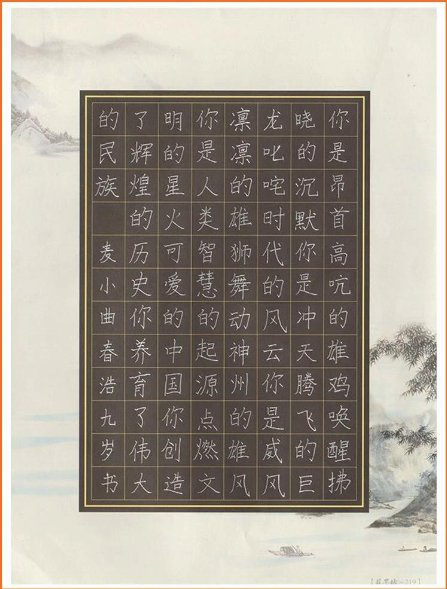 你是昂首高吭的雄鸡唤醒拂
晓的沉默你是冲天腾飞的巨
龙叱咤时代的风云你是威风
凛凛的雄狮舞动神州的雄风
你是人类智慧的起源点燃文
明的星火可爱的中国你创造
了辉煌的历史你养育了伟大
的民族 麦小曲春浩九岁书